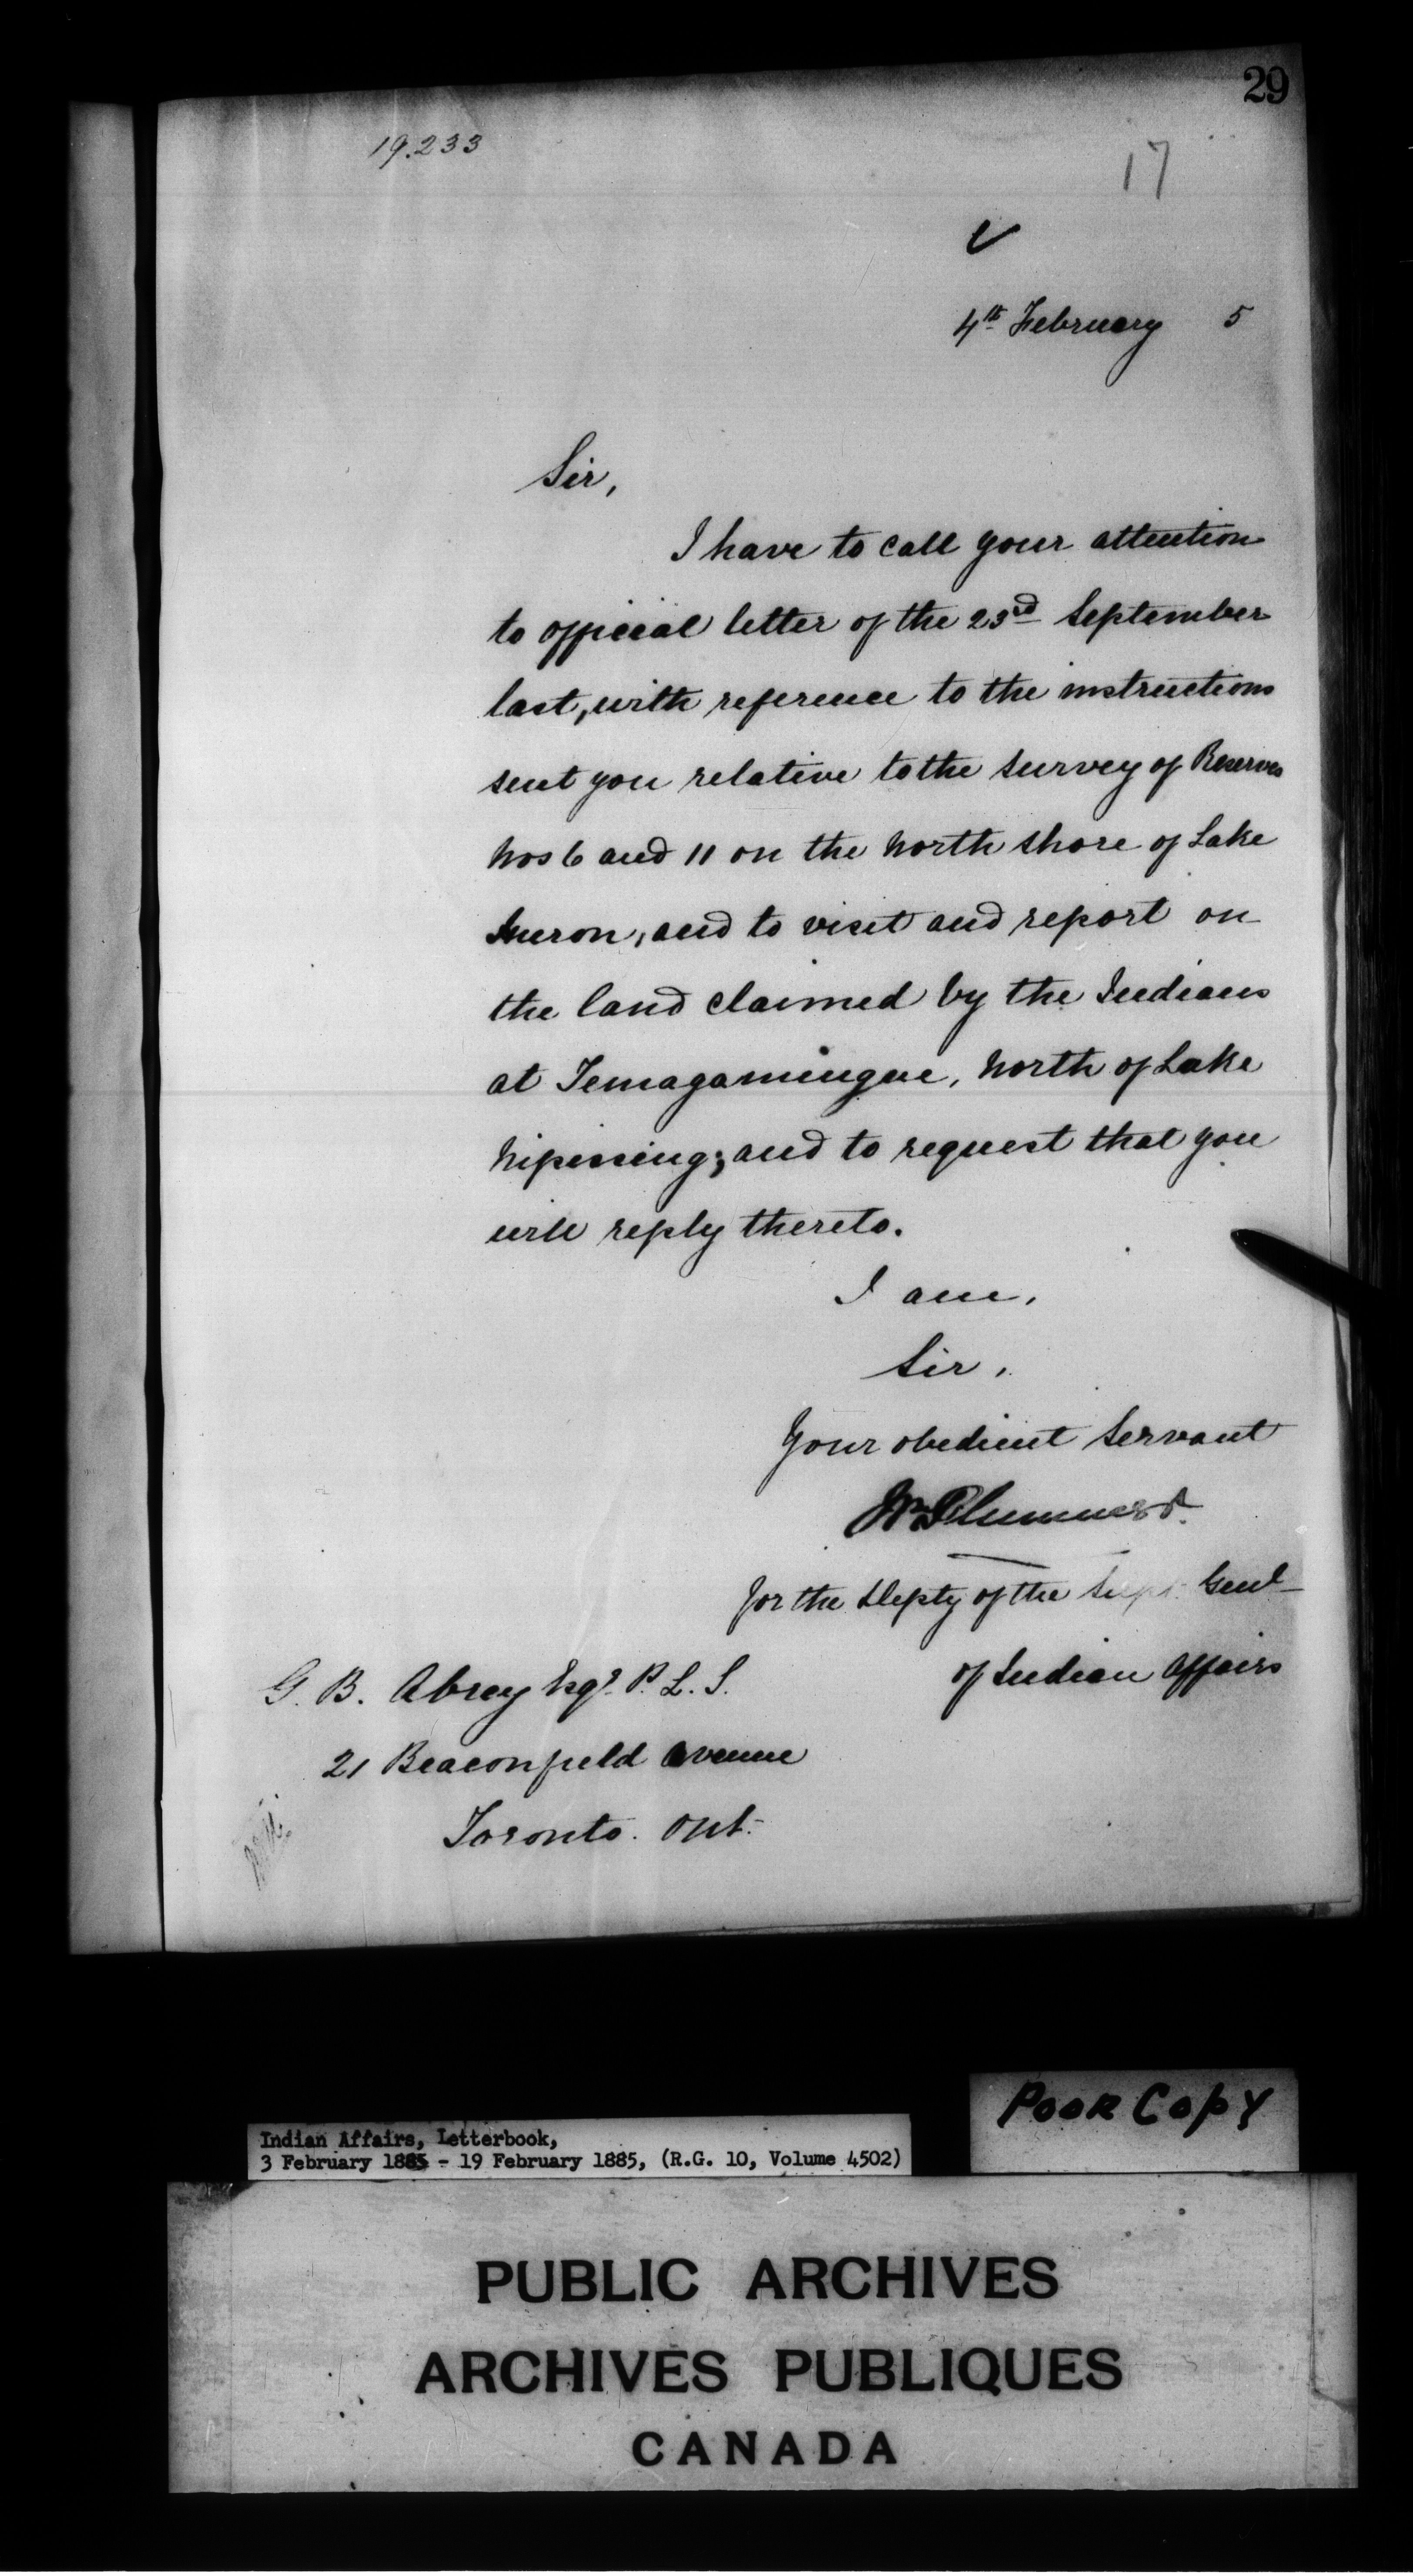 29
19.233
17
4th February 5
Sir,
I have to call your attention
to official letter of the 23rd September
last, with reference to the instructions
sent you relative to the survey of Reserves
Nos 6 and 11 on the North Shore of Lake
Huron, and to visit and report on
the land claimed by the Indians
at Temagamingue, North of Lake
Nipissing; and to request that you
will reply thereto.
I am,
Sir,
Your obedient Servant
Wm Plummer
for the Depty of the Supt. Genl
of Indian Affairs
G. B. Abrey Esqr. P. L. S.
21 Beaconfield Avenue
Toronto. Ont.
Poor Copy
Indian Affairs, Letterbook,
3 February 1885 - 19 February 1885, (R.G. 10, Volume 4502)
PUBLIC ARCHIVES
ARCHIVES PUBLIQUES
CANADA